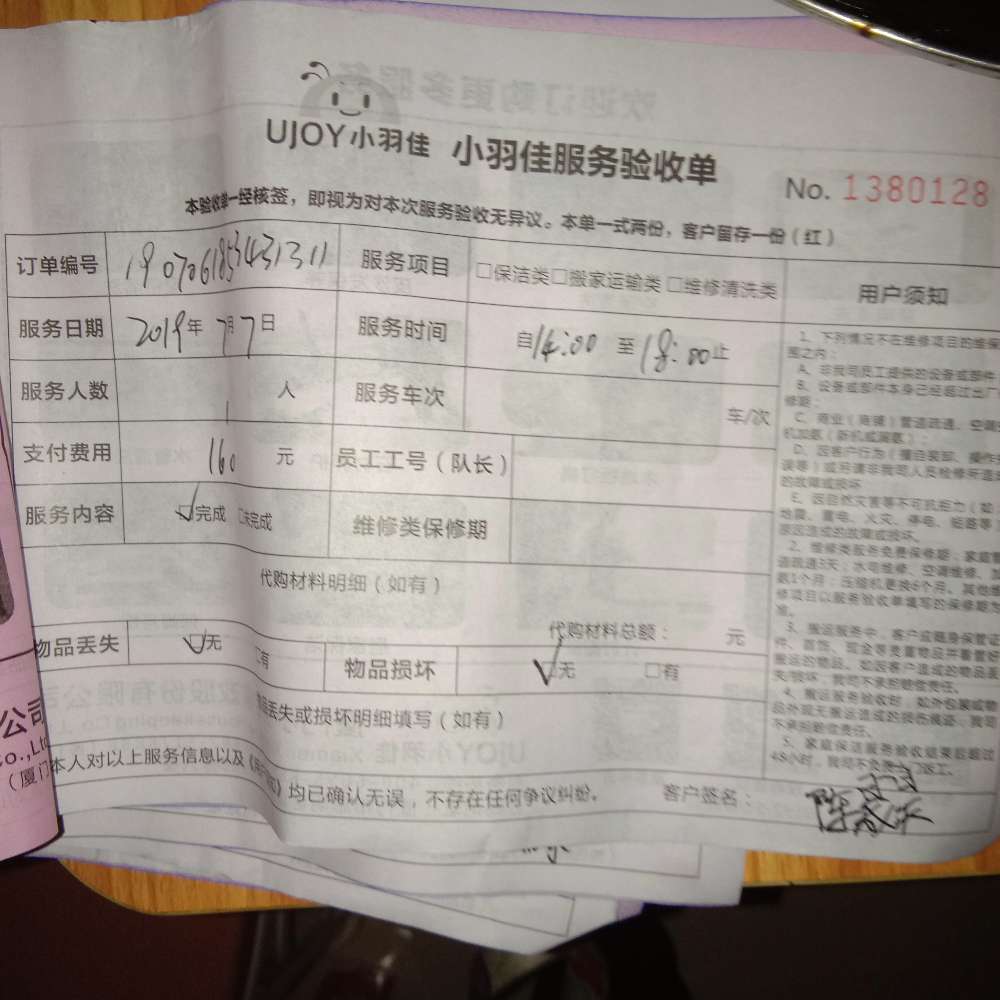 UJOY小羽佳 小羽佳服务验收单
No. 1380128
本验收单一经核签，即视为对本次服务验收无异议。本单一式两份，客户留存一份（红）
订单编号 服务项目 □保洁类□搬家运输类 □维修清洗类
服务日期 2019年7月7日 服务时间 自14:00 至18:00止
服务人数 1 人 服务车次 车/次
支付费用 160 元 员工工号（队长）
服务内容 ☑完成 □未完成 维修类保修期
代购材料明细（如有）
代购材料总额： 元
物品丢失 ☑无 □有 物品损坏 ☑无 □有
丢失或损坏明细填写（如有）
本人对以上服务信息以及 均已确认无误，不存在任何争议纠纷。 客户签名：
用户须知
1、下列情况不在维修项目的维保
围之内：
A、非我司员工提供的设备或部件
B、设备或部件本身已经超过出厂
修期；
C、商业（商铺）管道疏通、空调
机加氨（新机或漏氨）；
D、因客户行为（擅自装卸、操作
误等）或另请非我司人员检修开
的故障或损坏
E、因自然灾害等不可抗拒力（如
地震、雷电、火灾、停电、短路等
原因造成的故障或损坏。
2、维修类服务免费保修期：家庭管
道疏通3天；水电维修、空调维修、
数1个月；压缩机更换6个月。其他维
修项目以服务验收单填写的保修期为
准。
3、搬运服务中，客户应随身保管证
件、首饰、现金等贵重物品并看管好
搬运的物品。如因客户造成的物品丢
失/损坏，我司不承担赔偿责任。
4、搬运服务验收时，如外包装或物
品外观无搬运造成的损伤痕迹，我司
不承担赔偿责任。
5、家庭保洁服务验收结束后超过
48小时，我司不负责上门返工。
公司
Co.,Ltd
（厦门